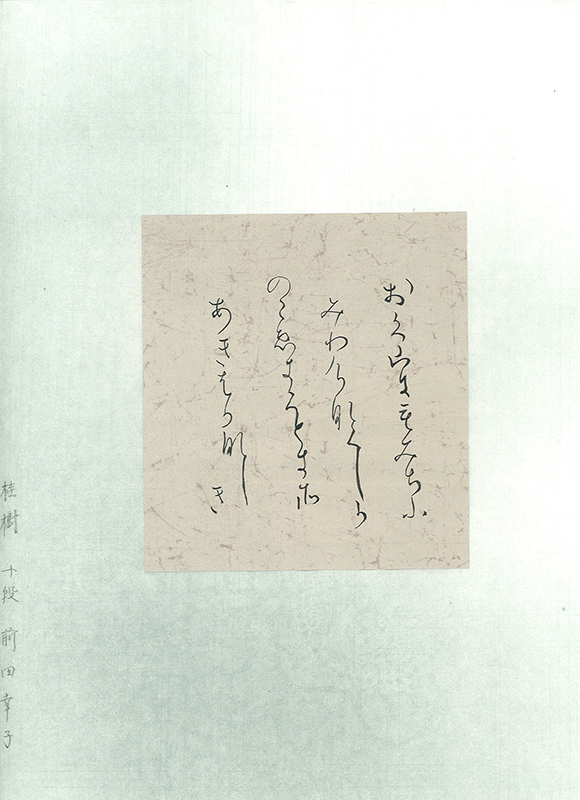 おく山にもみちふ
みわけなくしか
のこゑきくときそ
あきはかなしき
桂樹 十段 前田幸子